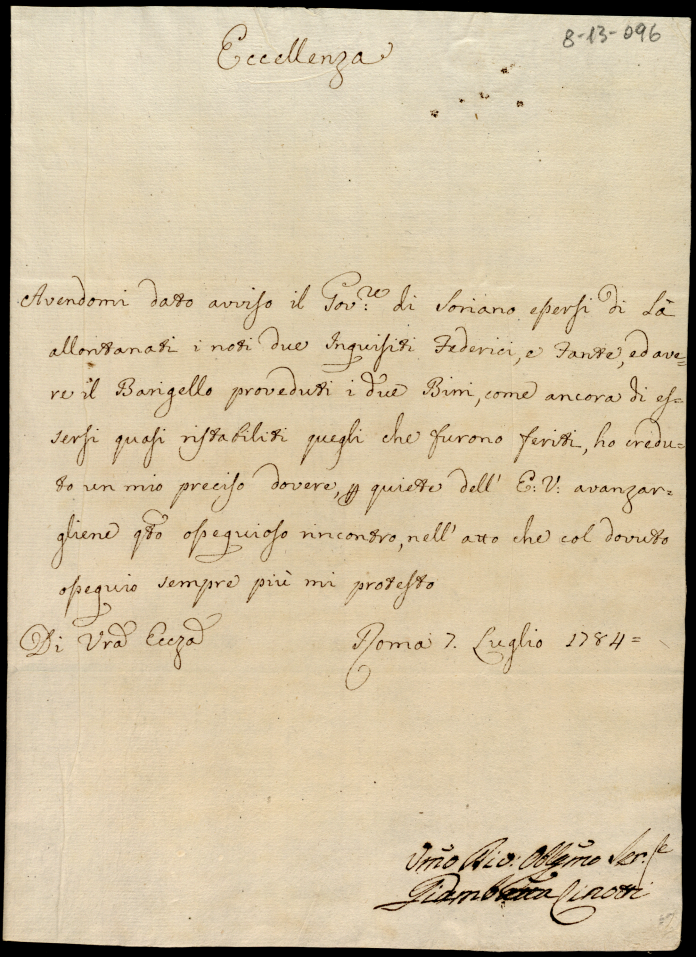 8-13-096
Eccellenza
Avendomi dato avviso il Gov.re di Soriano essersi di Là
allontanati i noti due Inquisiti Federici, e Fante, ed ave=
re il Barigello proveduti i due Birri, come ancora di es=
sersi quasi ristabiliti quegli che furono feriti, ho credu=
to un mio preciso dovere, p quiete dell' E: V: avanzar=
gliene qto ossequioso rincontro, nell' atto che col dovuto
ossequio sempre più mi protesto
Di Vra Eccza Roma 7. Luglio 1784=
Umo Div: Obbgmo Ser.re
Giambatta